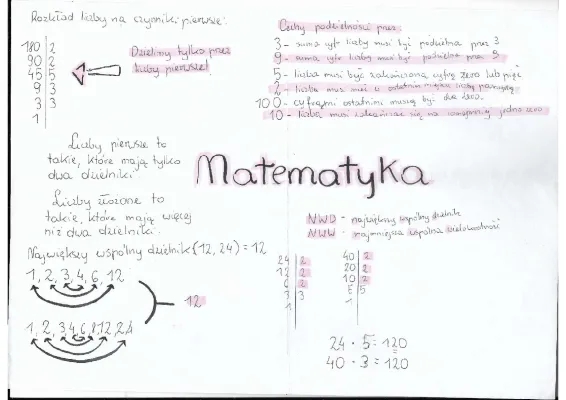 Rozkład liczby na czynniki pierwsze:
180 | 2
90 | 2
45 | 5
9 | 3
3 | 3
1 |
Dzielimy tylko przez
liczby pierwsze!
Cechy podzielności przez:
3 - suma cyfr liczby musi być podzielna przez 3
9 - suma cyfr liczby musi być podzielna przez 9
5 - liczba musi być zakończona cyfrą zero lub pięć
2 - liczba musi mieć w ostatnim miejscu liczbę parzystą
100 - cyframi ostatnimi muszą być dwa zera
10 - liczba musi zakańczać się na co najmniej jedno zero
Liczby pierwsze to
takie, które mają tylko
dwa dzielniki
Matematyka
Liczby złożone to
takie, które mają więcej
niż dwa dzielniki.
NWD - największy wspólny dzielnik
NWW - najmniejsza wspólna wielokrotność
Największy wspólny dzielnik (12, 24) = 12
1, 2, 3, 4, 6, 12
12
1, 2, 3, 4, 6, 8, 12, 24
24 | 2
12 | 2
6 | 2
3 | 3
1 |
40 | 2
20 | 2
10 | 2
5 | 5
1 |
24 · 5 = 120
40 · 3 = 120